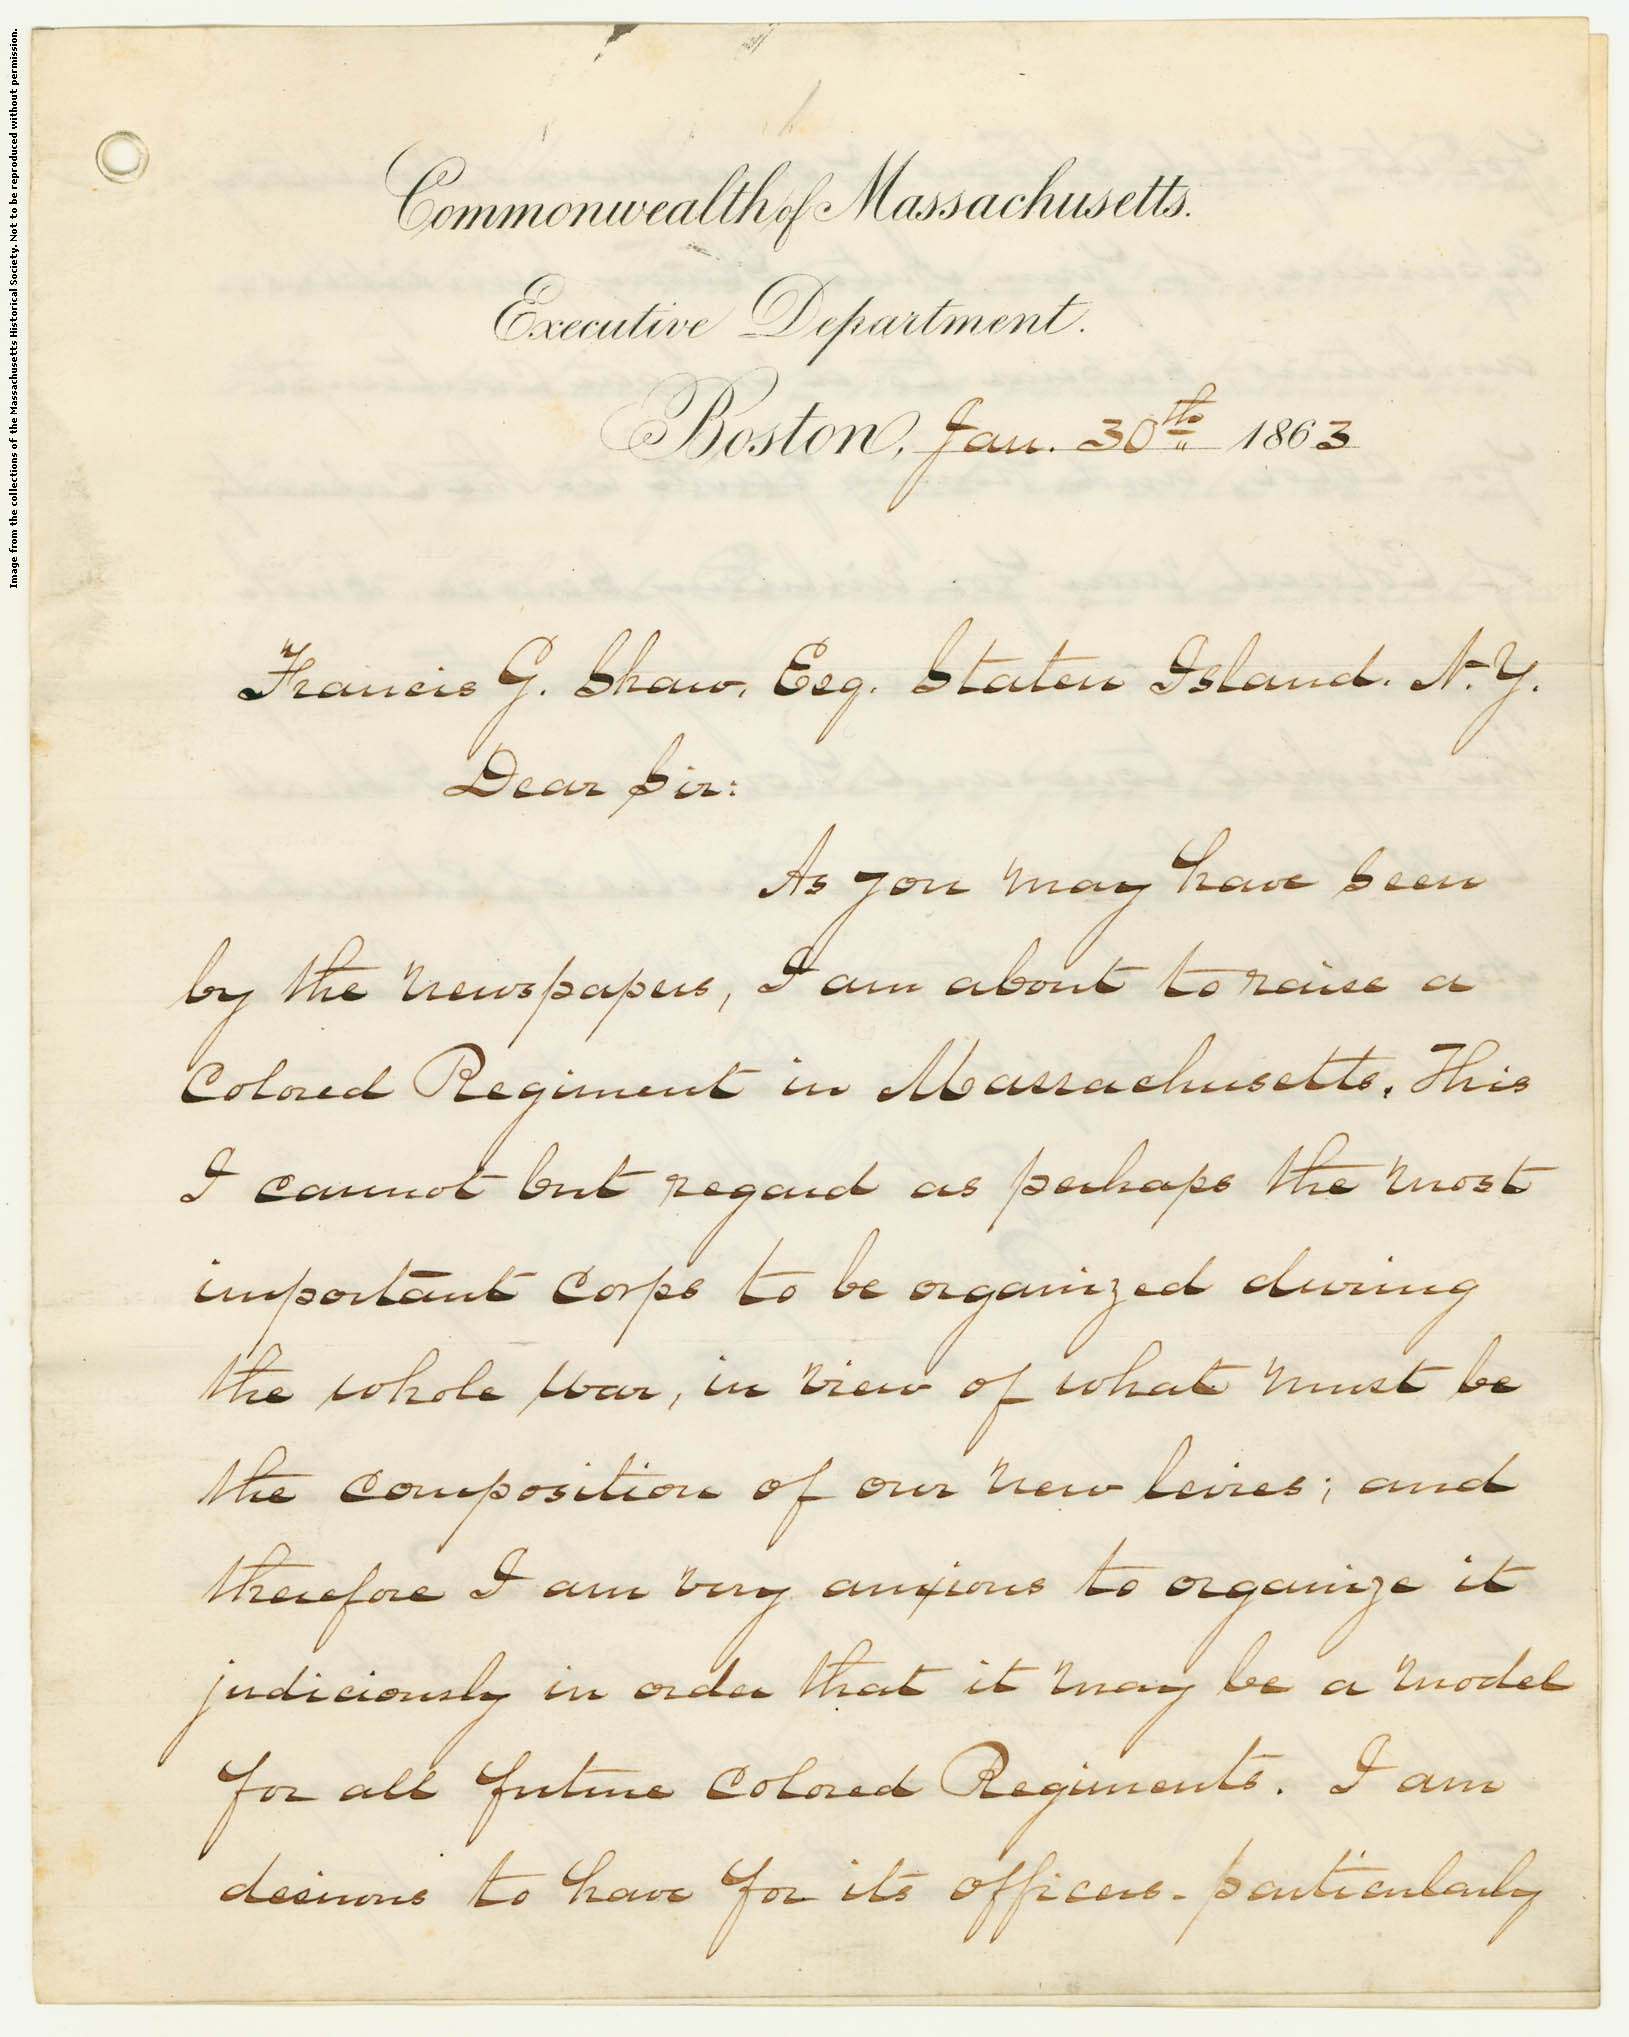 Image from the collections of the Massachusetts Historical Society. Not to be reproduced without permission.
Commonwealth of Massachusetts.
Executive Department.
Boston, Jan. 30th 1863
Francis G. Shaw, Esq. Staten Island. N.Y.
Dear Sir:
As you may have seen
by the newspapers, I am about to raise a
Colored Regiment in Massachusetts. This
I cannot but regard as perhaps the most
important Corps to be organized during
the whole war, in view of what must be
the composition of our new levies; and
therefore I am very anxious to organize it
judiciously in order that it may be a model
for all future Colored Regiments. I am
desirous to have for its officers - particularly